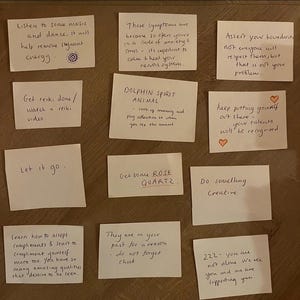 Listen to some music
and dance, it will
help remove stagnant
energy.
These symptoms are
because so often you're
in a state of anxiety &
- its important to
calm & heal your
nervous system.
Assert your boundaries
not everyone will
respect them, but
that is not your
problem.
Get reiki done /
watch a reiki
video
DOLPHIN SPIRIT
ANIMAL
- look up meaning and
pay attention to when
you see this animal
Keep putting yourself
out there
your talents
will be recognised
Let it go.
Get some ROSE
QUARTZ.
Do something
Creative
Learn how to accept
compliments & learn to
compliment yourself
more too. You have so
many amazing qualities
that deserve to be seen
They are in your
past for a reason
- do not forget
that
222 - you are
not alone we see
you and we are
supporting you